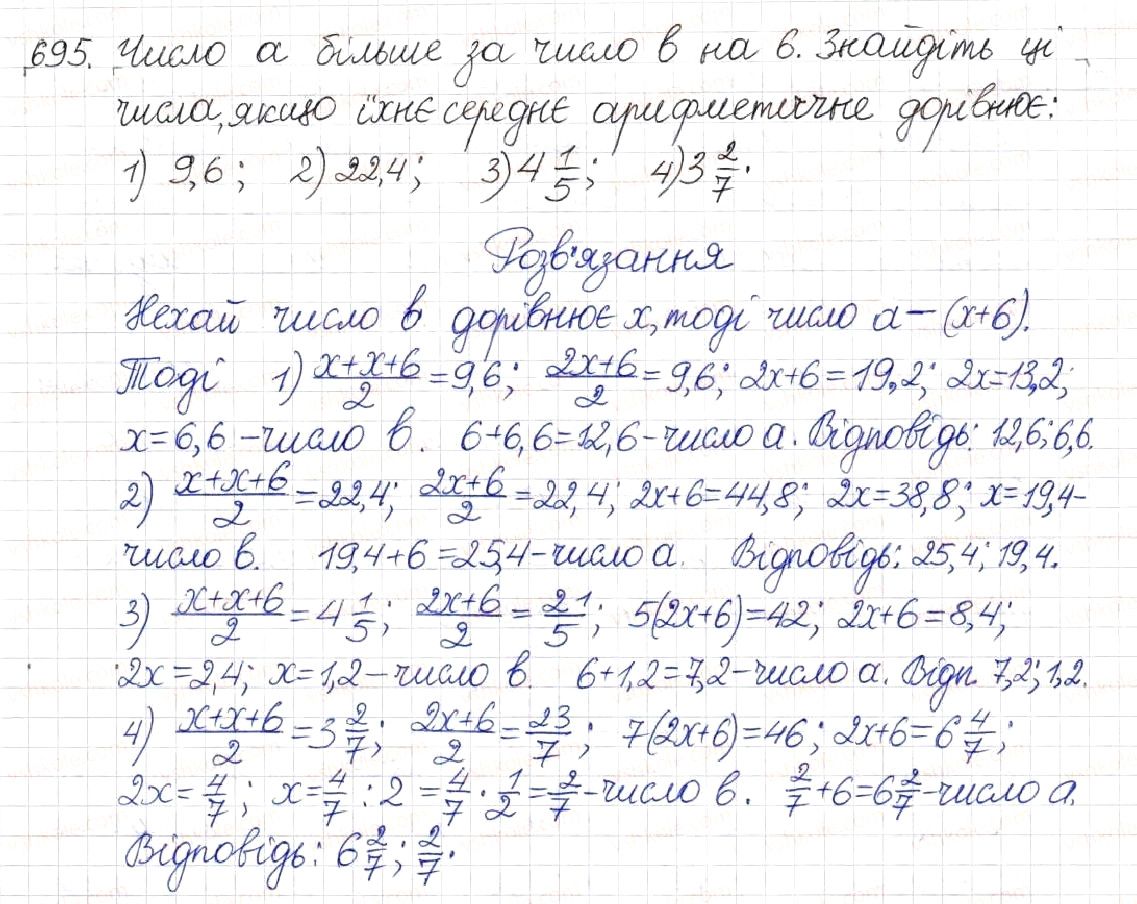 695. Число а більше за число в на 6. Знайдіть ці
числа, якщо їхнє середнє арифметичне дорівнює:
1) 9,6; 2) 22,4; 3) 4 1/5; 4) 3 2/7.
Розв'язання
Нехай число в дорівнює х, тоді число а – (х+6).
Тоді 1) (х+х+6)/2 = 9,6; (2х+6)/2 = 9,6; 2х+6=19,2; 2х=13,2;
х=6,6 – число в. 6+6,6=12,6 – число а. Відповідь: 12,6; 6,6.
2) (х+х+6)/2 = 22,4; (2х+6)/2 = 22,4; 2х+6=44,8; 2х=38,8; х=19,4 –
число в. 19,4+6=25,4 – число а. Відповідь: 25,4; 19,4.
3) (х+х+6)/2 = 4 1/5; (2х+6)/2 = 21/5; 5(2х+6)=42; 2х+6=8,4;
2х=2,4; х=1,2 – число в. 6+1,2=7,2 – число а. Відп. 7,2; 1,2.
4) (х+х+6)/2 = 3 2/7; (2х+6)/2 = 23/7; 7(2х+6)=46; 2х+6=6 4/7;
2х= 4/7; х= 4/7 : 2 = 4/7 · 1/2 = 2/7 – число в. 2/7 +6=6 2/7 – число а.
Відповідь: 6 2/7; 2/7.